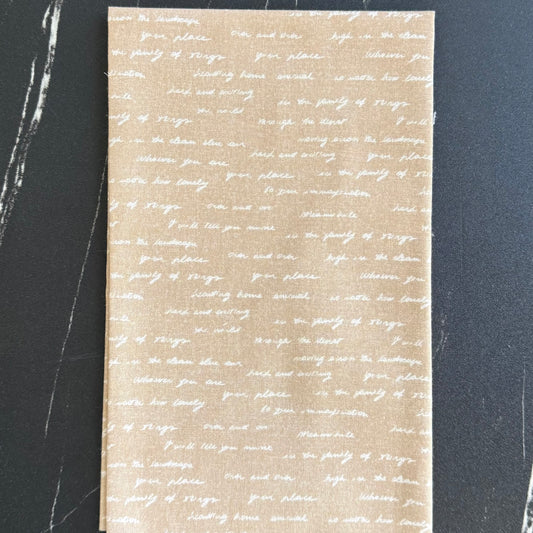 across the landscape
your place over and over high in the clean
the family of things your place Whoever you
imagination heading home animal no matter how lonely
hard and exciting
the wild in the family of things
through the desert I will
moving across the landscape
high in the clean blue air hard and exciting your place
Whoever you are in the family of things
no matter how lonely to your imagination
of things over and over meanwhile hard
I will tell you mine in the family of things
across the landscape over and over high in the clean
your place
the family of things your place Whoever you
imagination heading home animal no matter how lonely
hard and exciting
the wild in the family of things
through the desert I will
moving across the landscape
high in the clean blue air hard and exciting your place
Whoever you are
your place in the family of things
no matter how lonely to your imagination
of things meanwhile hard
I will tell you mine in the family of
the landscape over and over high in the clean
your place
the family of things your place Whoever you
imagination heading home animal no matter how lonely